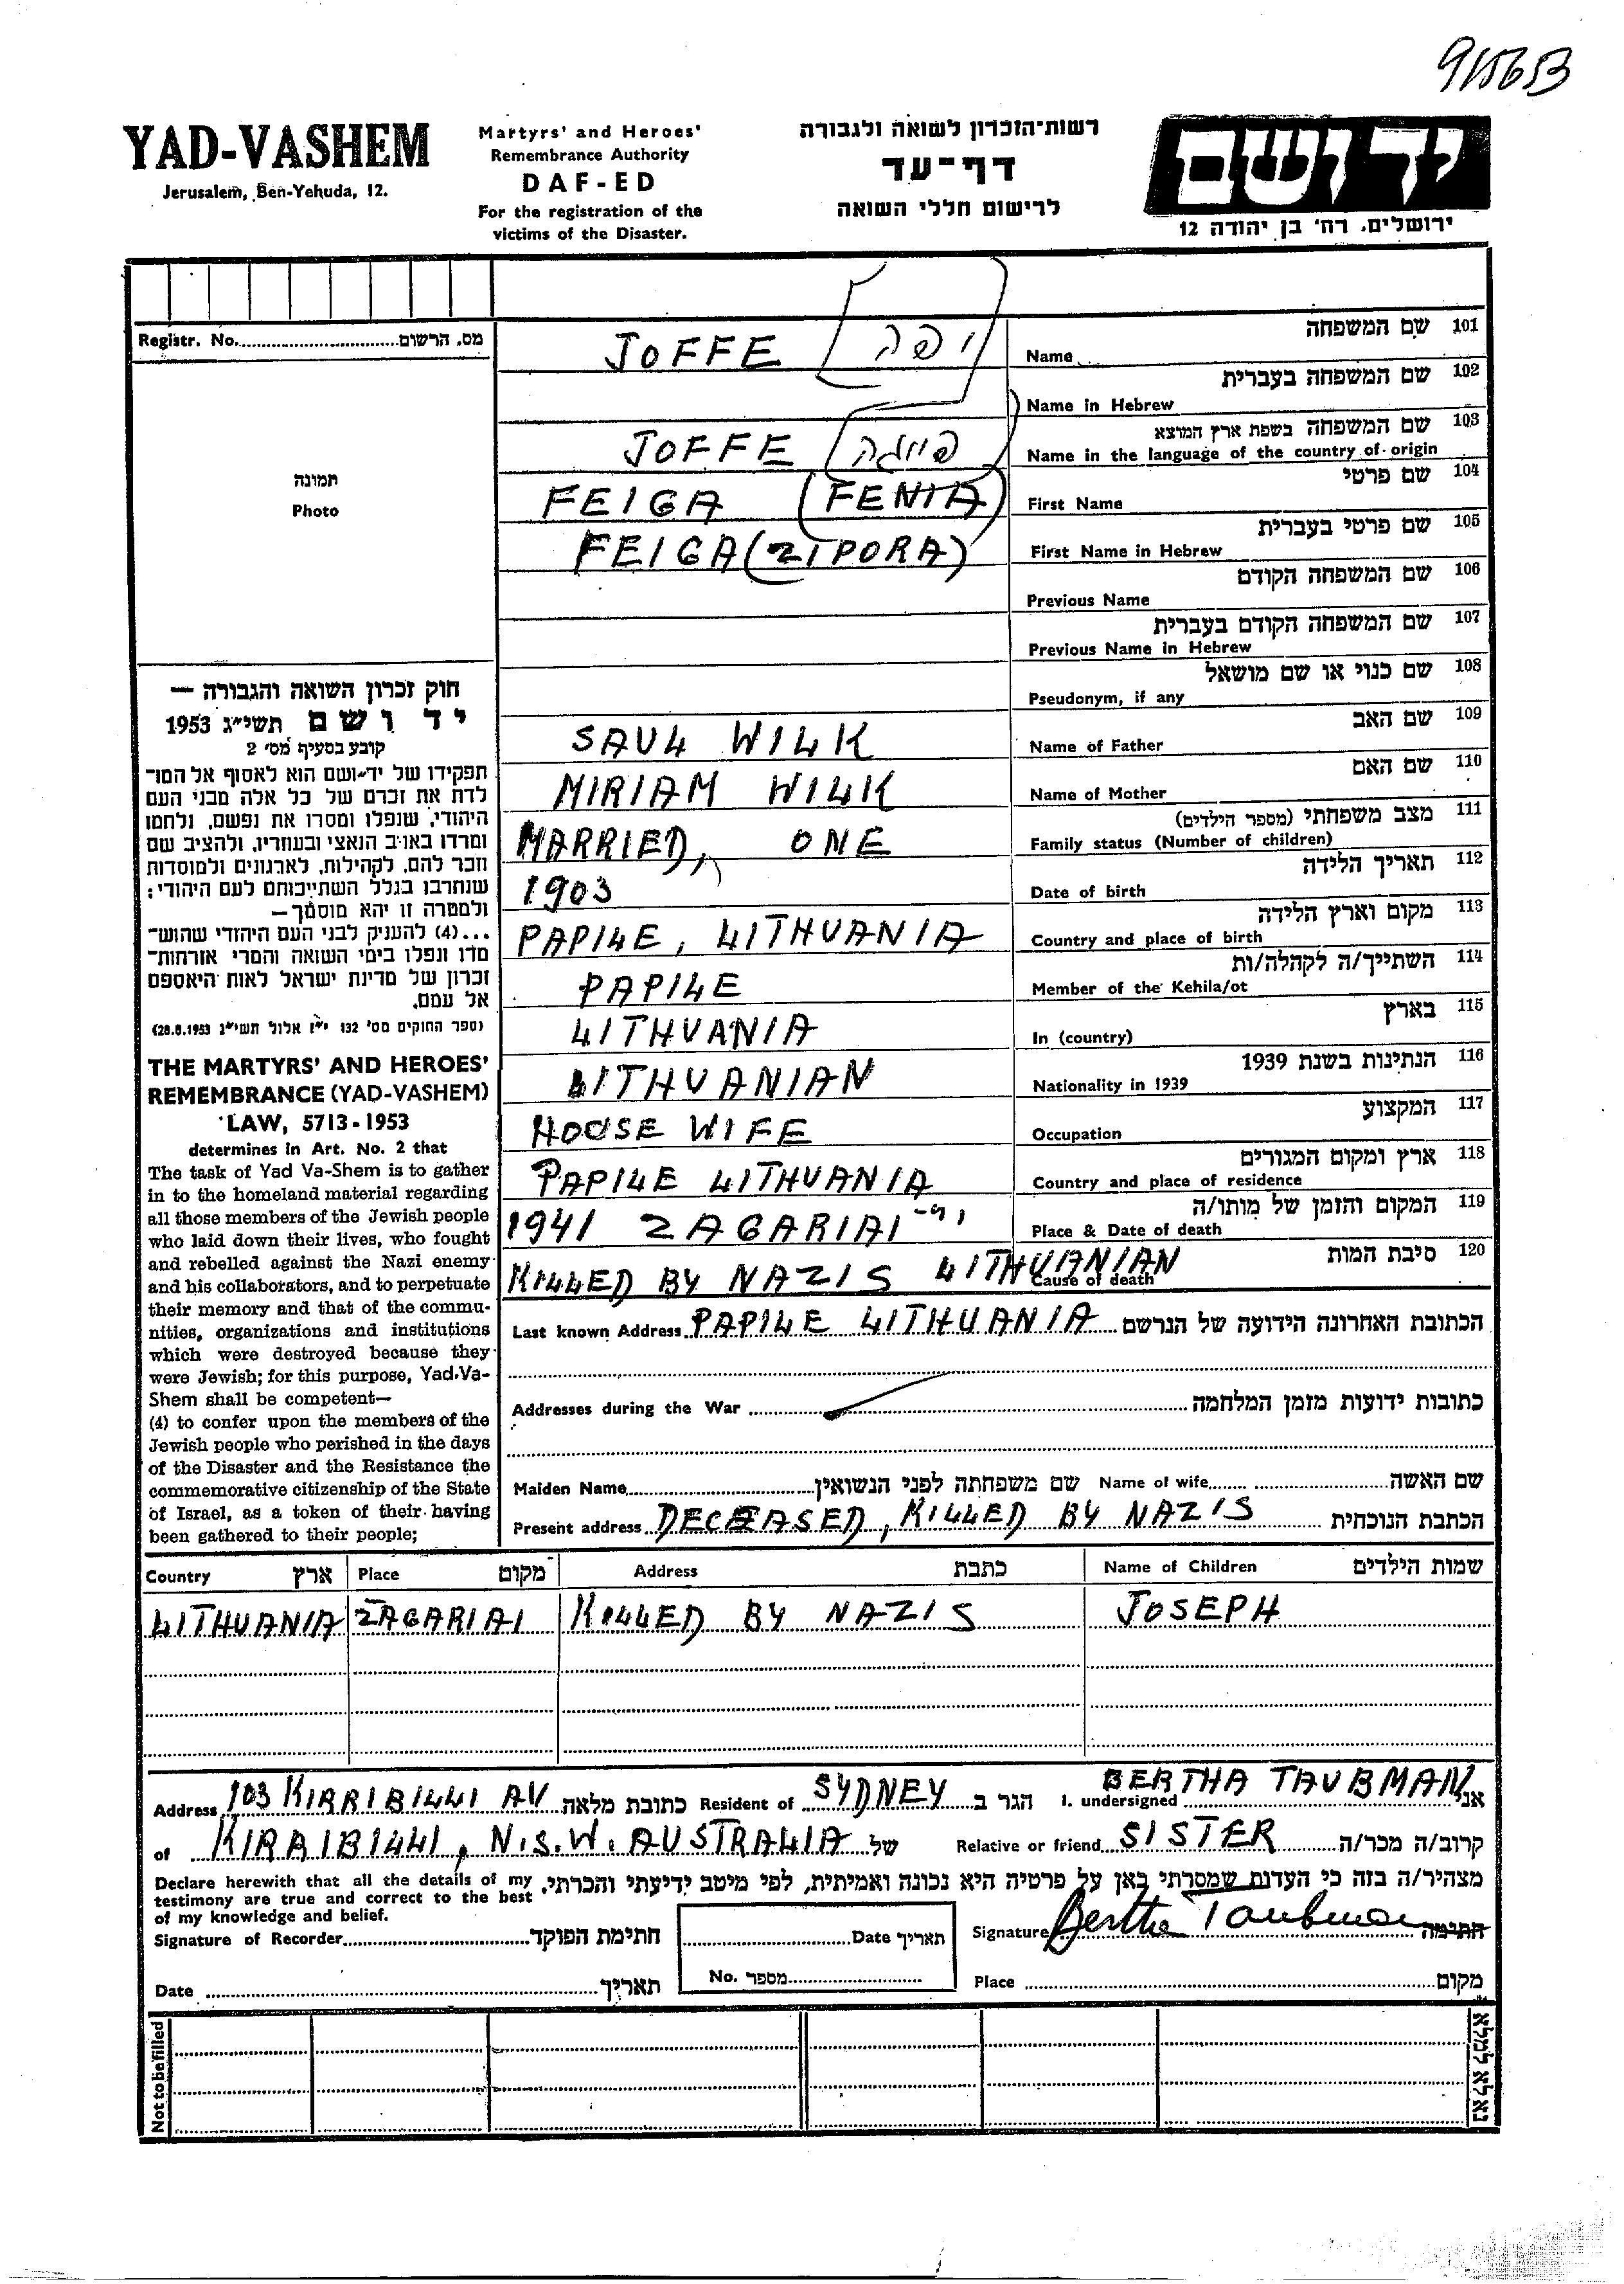 9/15653
YAD-VASHEM
Jerusalem, Ben-Yehuda, 12.
Martyrs' and Heroes'
Remembrance Authority
DAF-ED
For the registration of the
victims of the Disaster.
רשות-הזכרון לשואה ולגבורה
דף-עד
לרישום חללי השואה
יד ושם
ירושלים. רח' בן יהודה 12
Registr. No. מס. הרשום
תמונה
Photo
JOFFE יפה Name שם המשפחה 101
Name in Hebrew שם המשפחה בעברית 102
JOFFE פייגה Name in the language of the country of origin שם המשפחה בשפת ארץ המוצא 103
FEIGA (FENIA) First Name שם פרטי 104
FEIGA (ZIPORA) First Name in Hebrew שם פרטי בעברית 105
Previous Name שם המשפחה הקודם 106
Previous Name in Hebrew שם המשפחה הקודם בעברית 107
Pseudonym, if any שם כנוי או שם מושאל 108
SAUL WILK Name of Father שם האב 109
MIRIAM WILK Name of Mother שם האם 110
MARRIED, ONE Family status (Number of children) מצב משפחתי (מספר הילדים) 111
1903 Date of birth תאריך הלידה 112
PAPILE, LITHUANIA Country and place of birth מקום וארץ הלידה 113
PAPILE Member of the Kehila/ot השתייך/ה לקהלה/ות 114
LITHUANIA In (country) בארץ 115
LITHUANIAN Nationality in 1939 הנתינות בשנת 1939 116
HOUSE WIFE Occupation המקצוע 117
PAPILE LITHUANIA Country and place of residence ארץ ומקום המגורים 118
1941 ZAGARIAI Place & Date of death המקום והזמן של מותו/ה 119
KILLED BY NAZIS LITHUANIAN Cause of death סיבת המות 120
חוק זכרון השואה והגבורה —
יד ושם תשי"ג 1953
קובע בסעיף מס' 2
תפקידו של יד-ושם הוא לאסוף אל המו-
לדת את זכרם של כל אלה מבני העם
היהודי, שנפלו ומסרו את נפשם, נלחמו
ומרדו באויב הנאצי ובעוזריו, ולהציב שם
וזכר להם, לקהילות, לארגונים ולמוסדות
שנחרבו בגלל השתייכותם לעם היהודי;
ולמטרה זו יהא מוסמך—
...(4) להעניק לבני העם היהודי שהוש-
מדו ונפלו בימי השואה והמרי אזרחות-
זכרון של מדינת ישראל לאות היאספם
אל עמם.
(ספר החוקים מס' 132 י"ז אלול תשי"ג 28.8.1953)
THE MARTYRS' AND HEROES'
REMEMBRANCE (YAD-VASHEM)
LAW, 5713-1953
determines in Art. No. 2 that
The task of Yad Va-Shem is to gather
in to the homeland material regarding
all those members of the Jewish people
who laid down their lives, who fought
and rebelled against the Nazi enemy
and his collaborators, and to perpetuate
their memory and that of the commu-
nities, organizations and institutions
which were destroyed because they
were Jewish; for this purpose, Yad-Va-
Shem shall be competent—
(4) to confer upon the members of the
Jewish people who perished in the days
of the Disaster and the Resistance the
commemorative citizenship of the State
of Israel, as a token of their having
been gathered to their people;
Last known Address PAPILE LITHUANIA הכתובת האחרונה הידועה של הנרשם
Addresses during the War כתובות ידועות מזמן המלחמה
Maiden Name שם משפחתה לפני הנשואין Name of wife שם האשה
Present address DECEASED, KILLED BY NAZIS הכתבת הנוכחית
Country ארץ Place מקום Address כתבת Name of Children שמות הילדים
LITHUANIA ZAGARIAI KILLED BY NAZIS JOSEPH
Address 103 KIRRIBILLI AV כתובת מלאה Resident of SYDNEY הגר ב I. undersigned BERTHA TAUBMAN אני
of KIRRIBILLI, N.S.W. AUSTRALIA של Relative or friend SISTER קרוב/ה מכר/ה
Declare herewith that all the details of my
testimony are true and correct to the best
of my knowledge and belief.
מצהיר/ה בזה כי העדות שמסרתי כאן על פרטיה היא נכונה ואמיתית, לפי מיטב ידיעתי והכרתי.
Signature of Recorder חתימת הפוקד Date תאריך Signature Bertha Taubman חתימה
Date תאריך No. מספר Place מקום
Not to be filled נא לא למלא